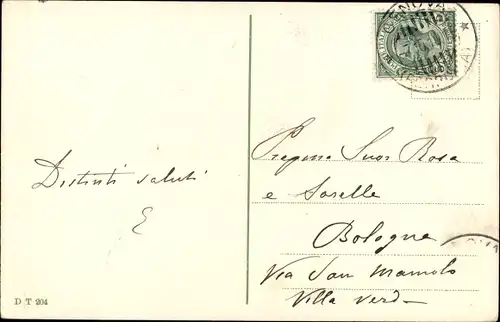 GENOVA
Distinti saluti
E
Pregma Suor Rosa
e Sorelle
Bologna
Via San Mamolo
Villa Verde
D T 204